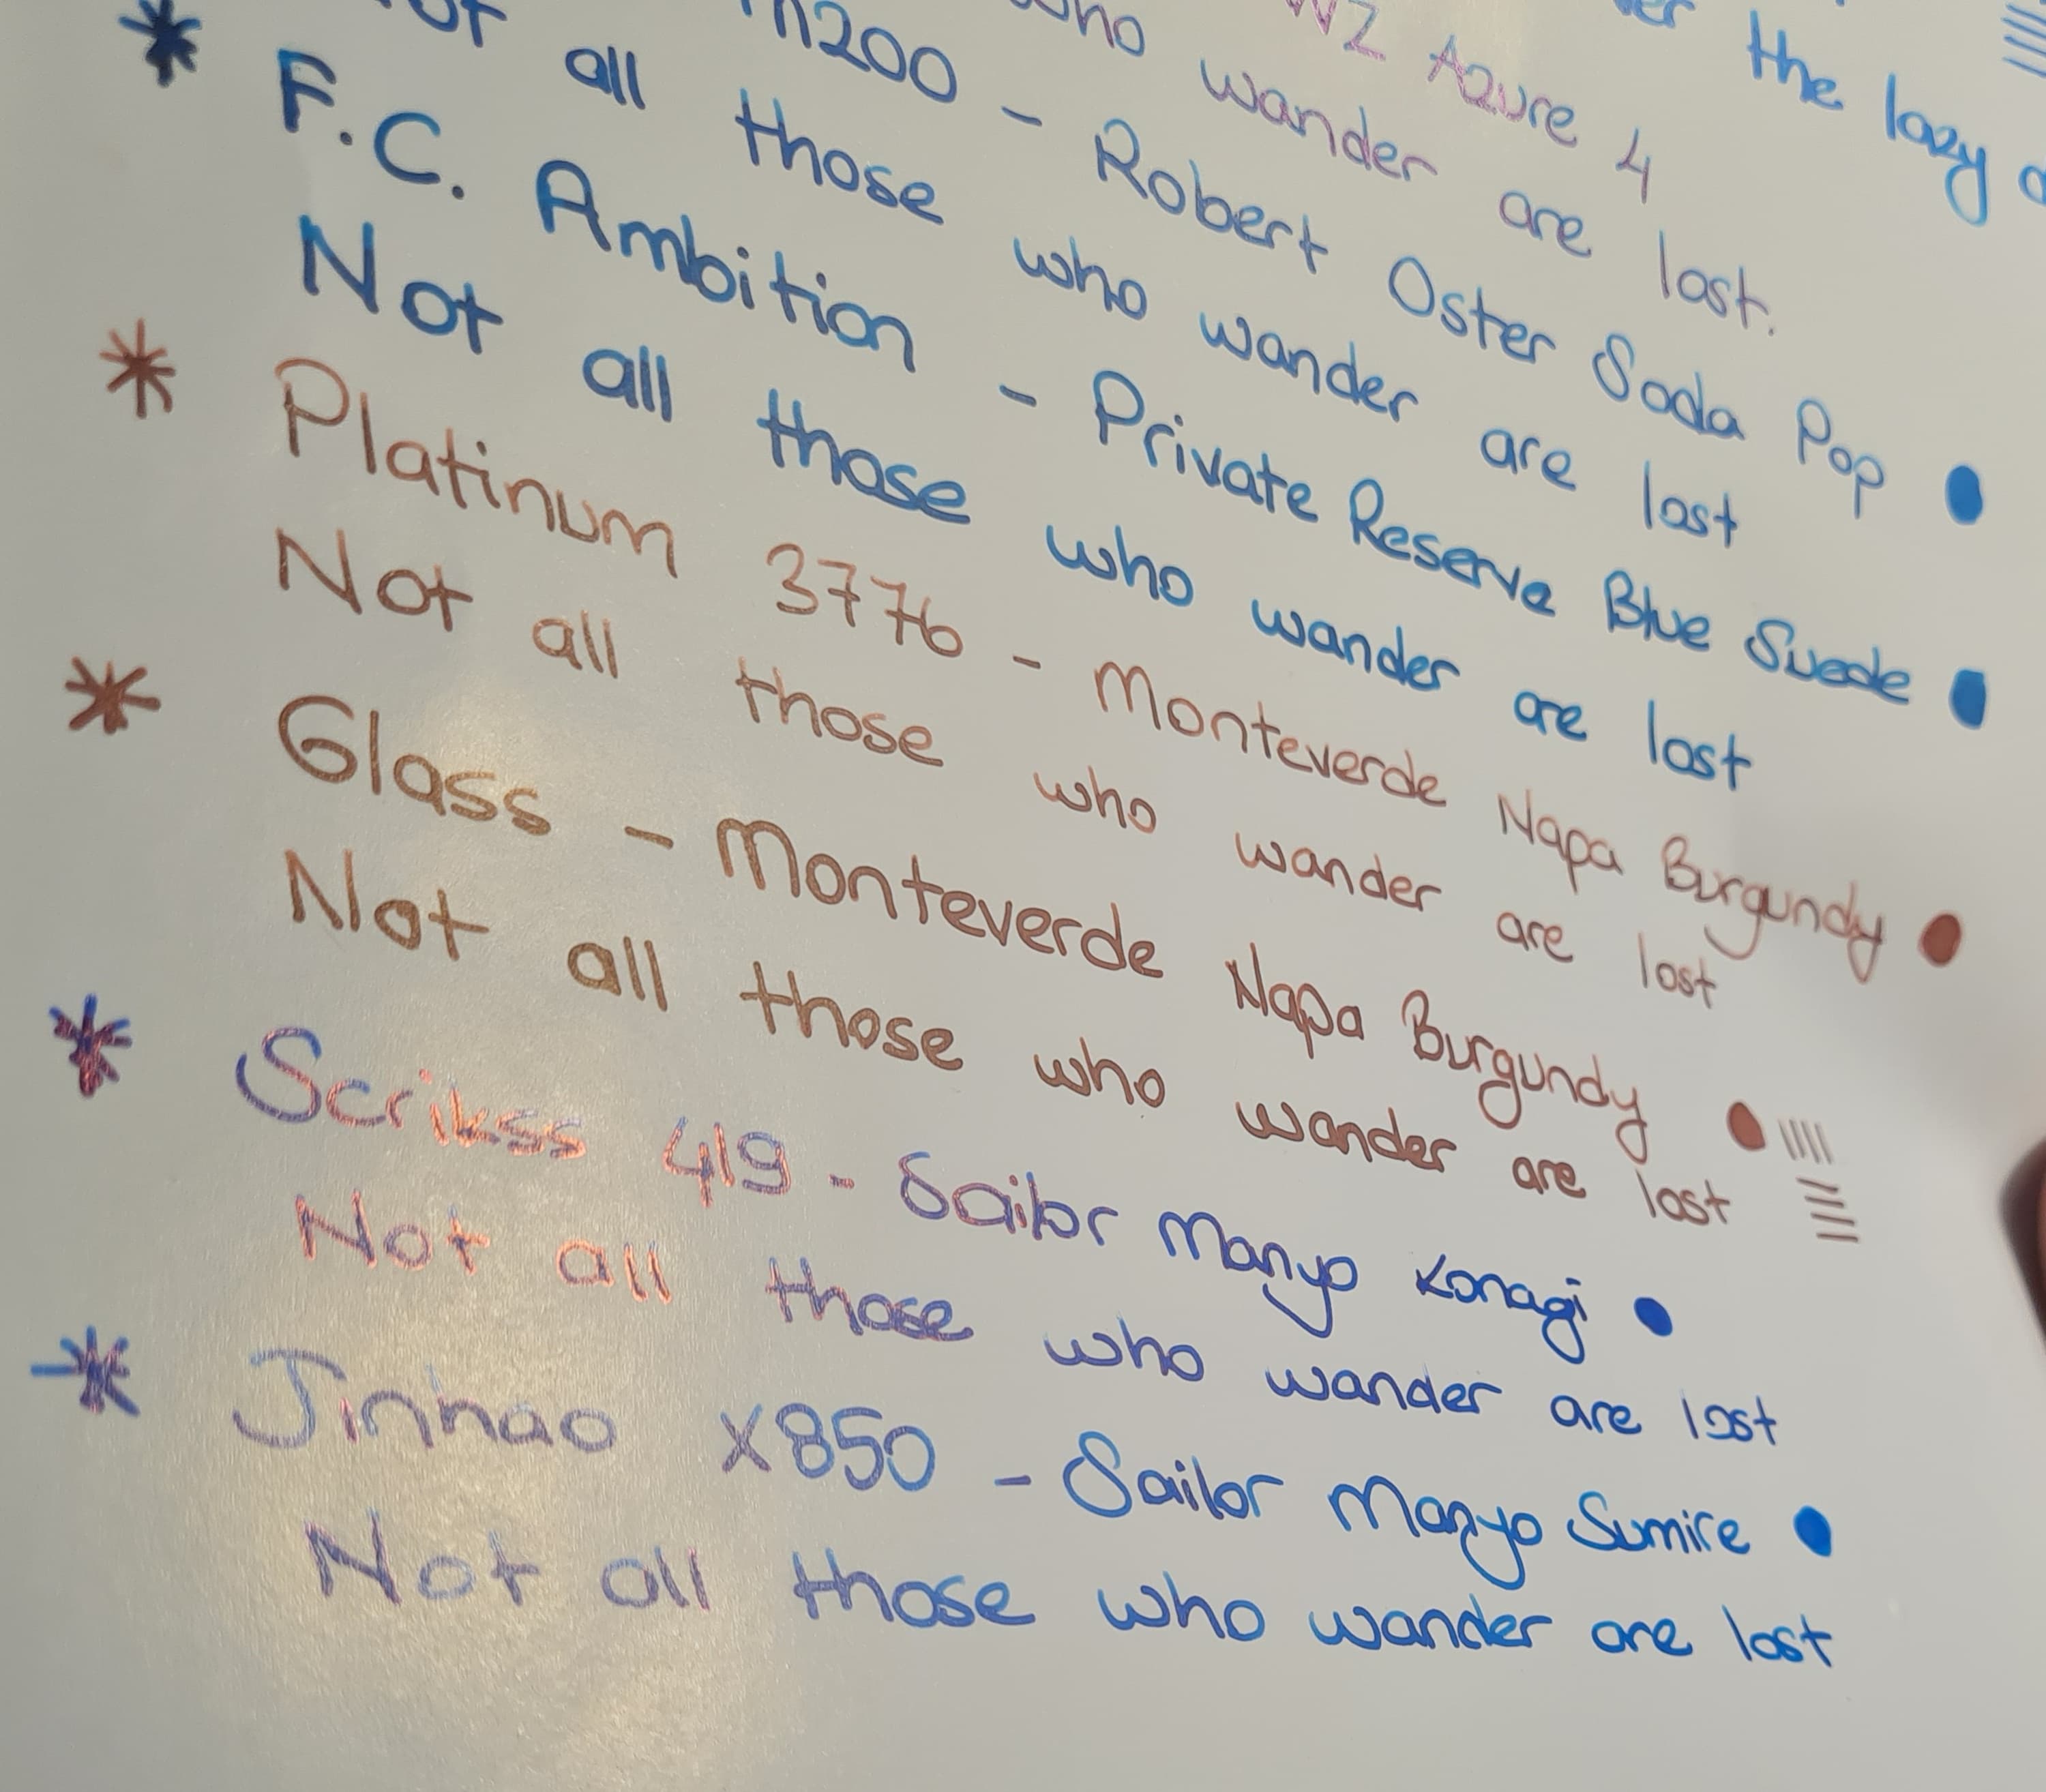 the lazy
WZ Azure 4
who wander are lost.
M200 - Robert Oster Soda Pop
Not all those who wander are lost
F.C. Ambition - Private Reserve Blue Suede
Not all those who wander are lost
Platinum 3776 - Monteverde Napa Burgundy
Not all those who wander are lost
Glass - Monteverde Napa Burgundy
Not all those who wander are lost
Scrikss 419 - Sailor Manyo Konagi
Not all those who wander are lost
Jinhao X850 - Sailor Manyo Sumire
Not all those who wander are lost